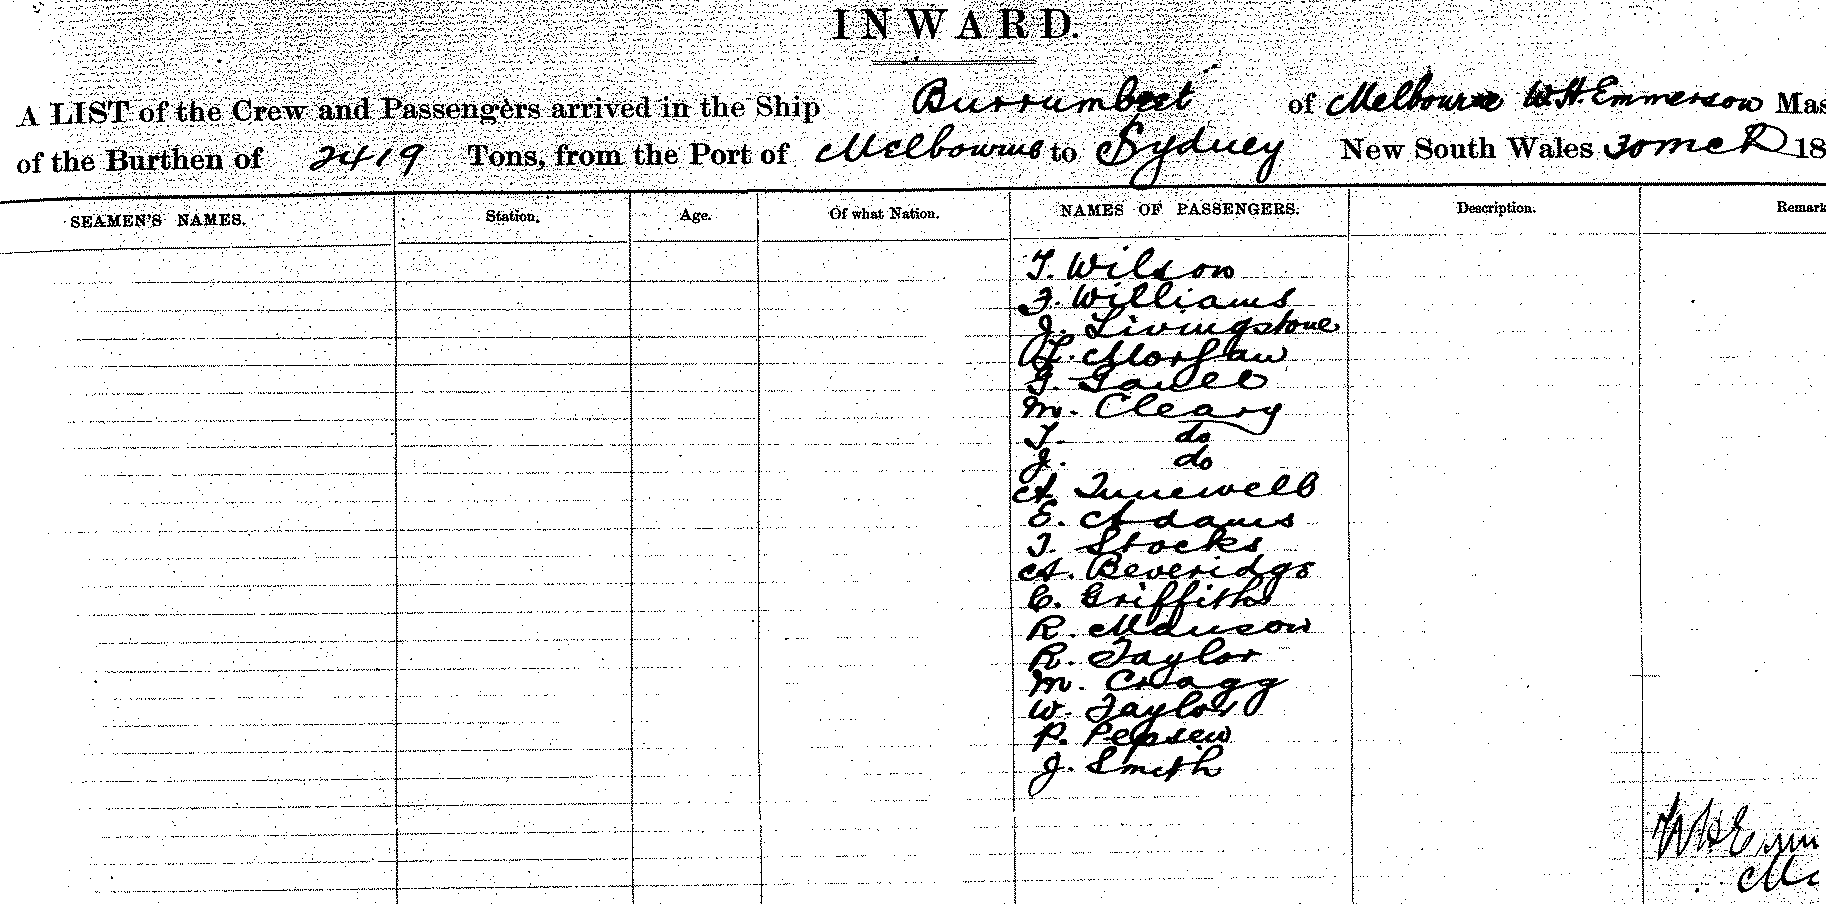 INWARD.
A LIST of the Crew and Passengers arrived in the Ship Burrumbeet of Melbourne W.H. Emmerson Mas
of the Burthen of 2419 Tons, from the Port of Melbourne to Sydney New South Wales 30 18
SEAMEN'S NAMES. Station. Age. Of what Nation. NAMES OF PASSENGERS. Description. Remark
T. Wilson
F. Williams
J. Livingstone
Morgan
M. Cleary
T. do
J. do
A.
E. Adams
T. Stocks
A. Beveridge
C. Griffiths
R. Manson
R. Taylor
M. Cragg
W. Taylor
P. Pepsen
J. Smith
W H Emm